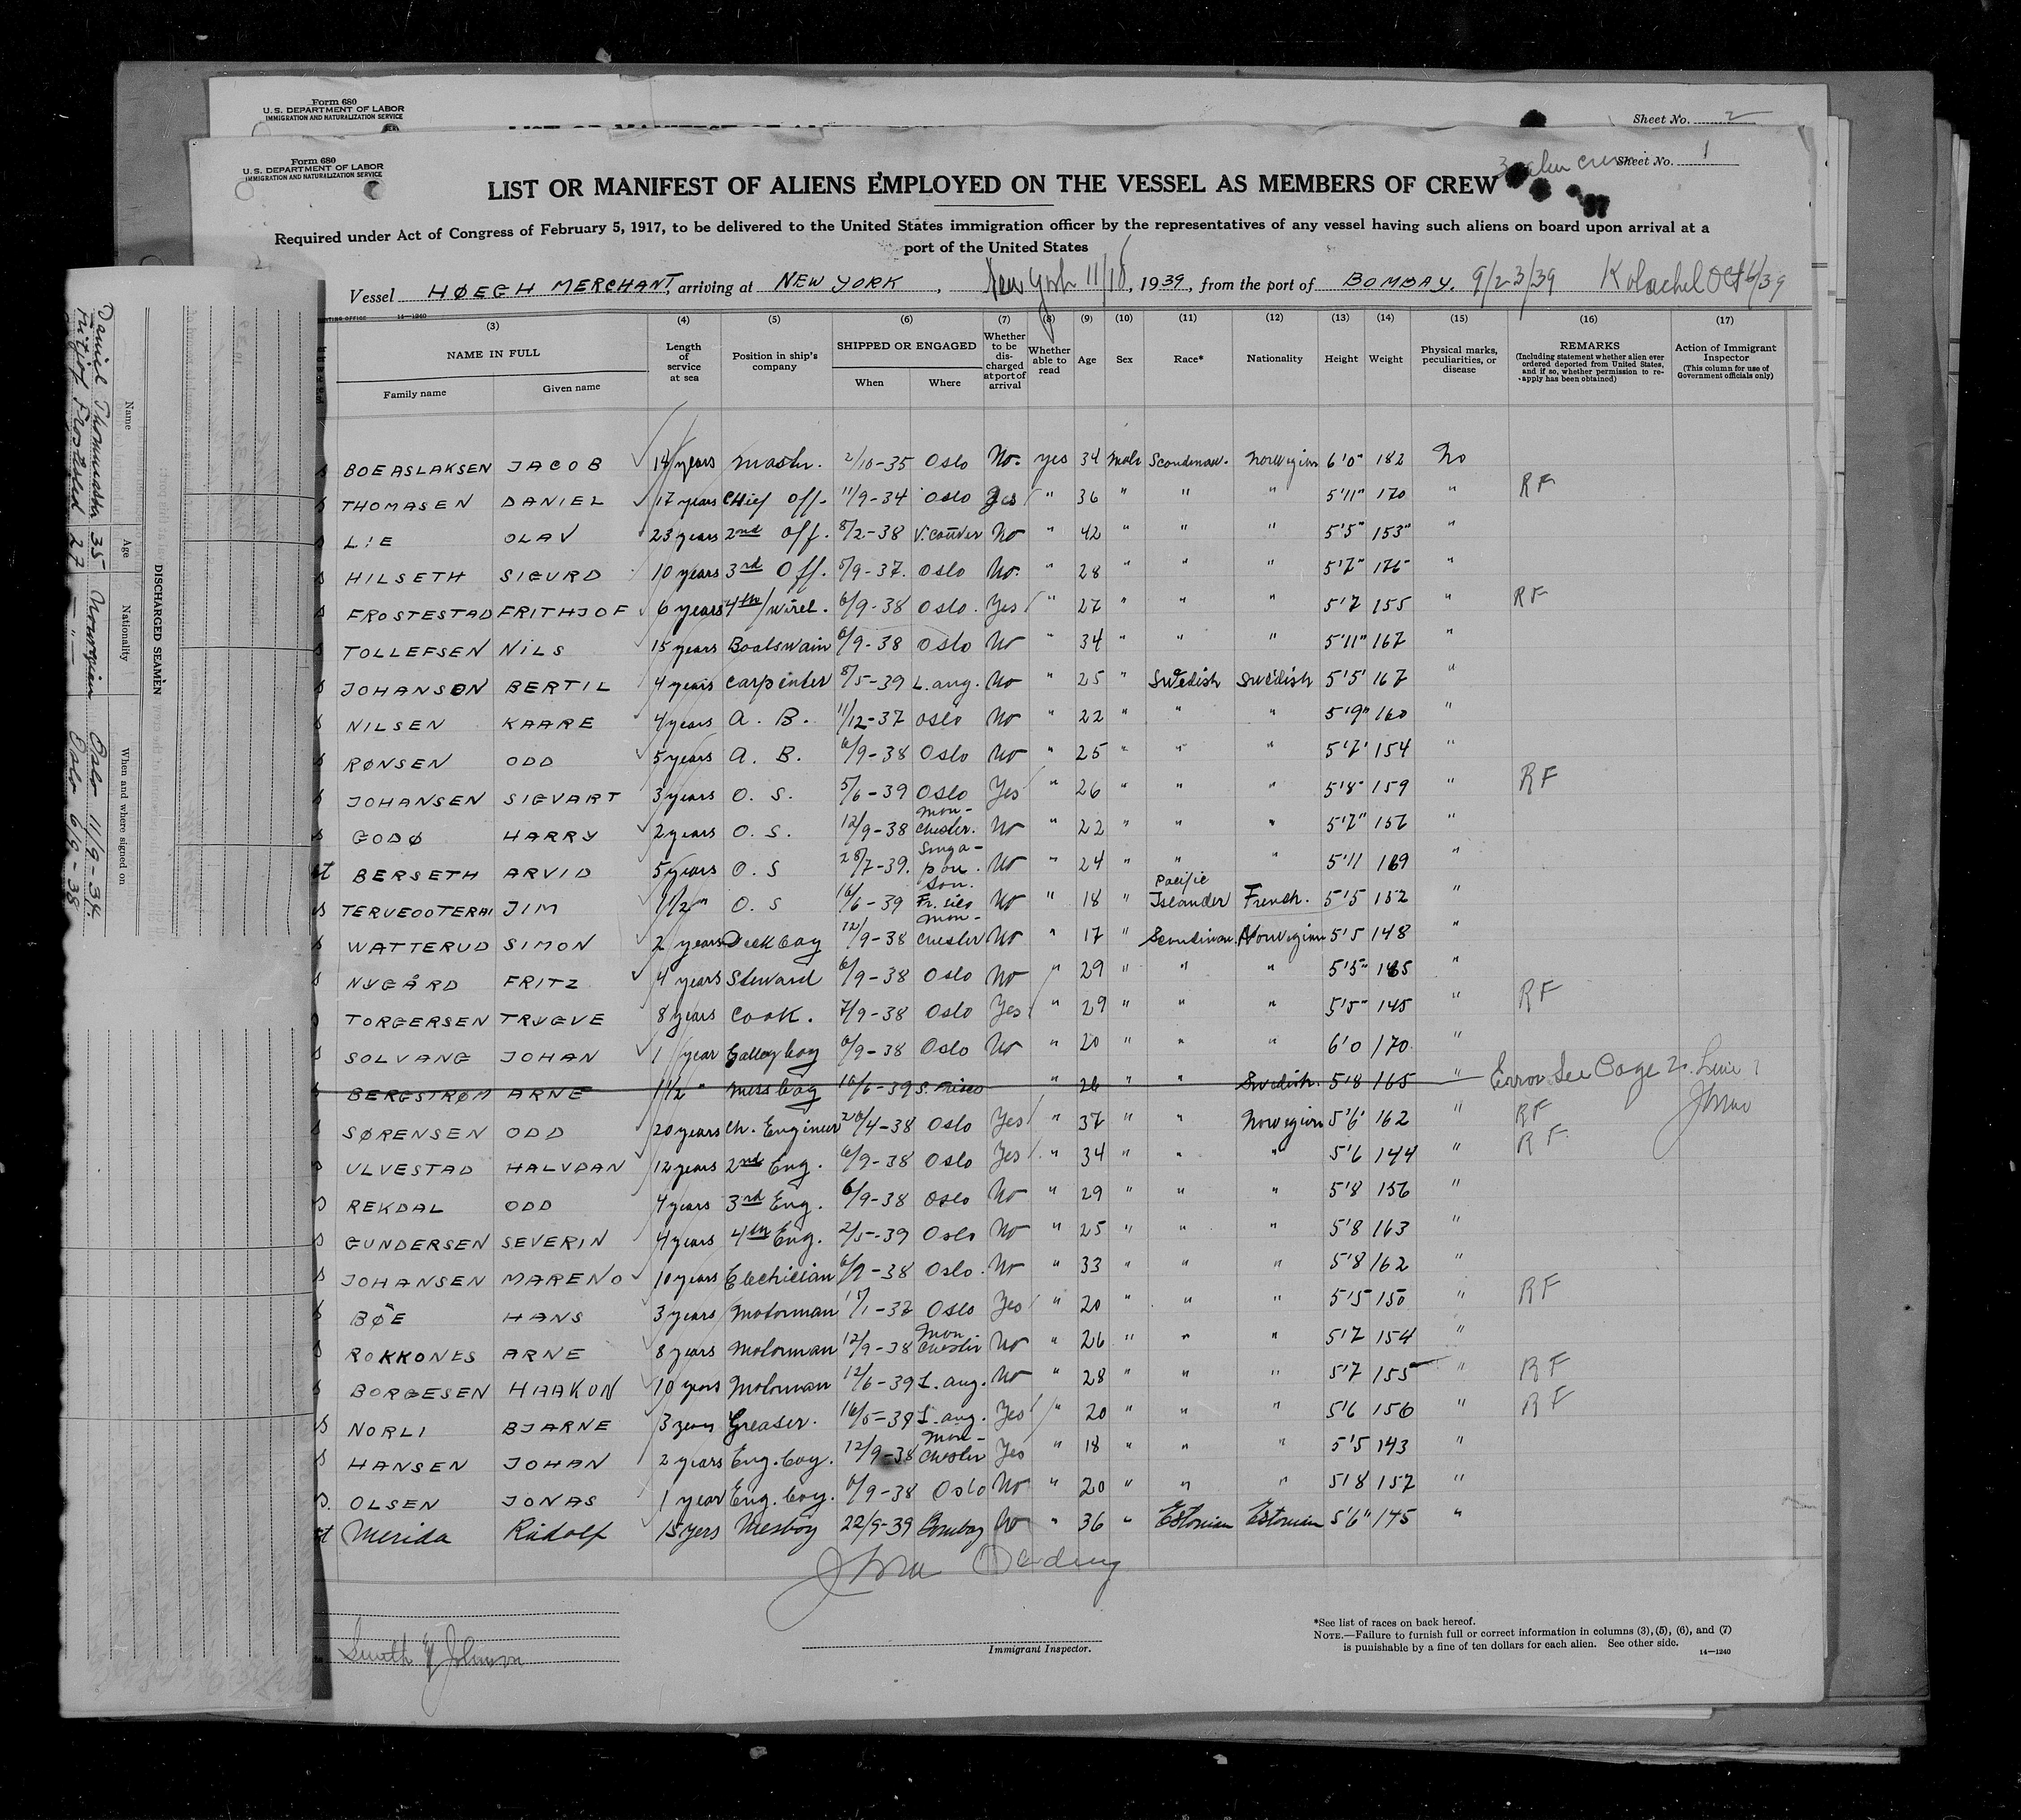 Form 680
U.S. DEPARTMENT OF LABOR
IMMIGRATION AND NATURALIZATION SERVICE
Sheet No. 2
Form 680
U.S. DEPARTMENT OF LABOR
IMMIGRATION AND NATURALIZATION SERVICE
Sheet No. 1
LIST OR MANIFEST OF ALIENS EMPLOYED ON THE VESSEL AS MEMBERS OF CREW
Required under Act of Congress of February 5, 1917, to be delivered to the United States immigration officer by the representatives of any vessel having such aliens on board upon arrival at a
port of the United States
Vessel HØEGH MERCHANT, arriving at NEW YORK, New York 11/18, 1939, from the port of BOMBAY. 9/23/39 Kolachel Oct 6/39
14—1240
(3) (4) (5) (6) (7) (8) (9) (10) (11) (12) (13) (14) (15) (16) (17)
NAME IN FULL
Family name Given name
Length of service at sea
Position in ship's company
SHIPPED OR ENGAGED
When Where
Whether to be discharged at port of arrival
Whether able to read
Age
Sex
Race*
Nationality
Height
Weight
Physical marks, peculiarities, or disease
REMARKS
(Including statement whether alien ever ordered deported from United States, and if so, whether permission to reapply has been obtained)
Action of Immigrant Inspector
(This column for use of Government officials only)
BOEASLAKSEN JACOB 14 years Master. 2/10-35 Oslo No. yes 34 Male Scandinav. Norwegian 6'0" 182 No
THOMASEN DANIEL 17 years Chief Off. 11/9-34 Oslo Yes " 36 " " " 5'11" 170 " RF
LIE OLAV 23 years 2nd Off. 8/2-38 V.couver No " 42 " " " 5'5" 153 "
HILSETH SIGURD 10 years 3rd Off. 5/9-37. Oslo No. " 28 " " " 5'7" 175 "
FROSTESTAD FRITHJOF 6 years 4th/wirel. 6/9-38 Oslo. Yes " 27 " " " 5'7 155 " RF
TOLLEFSEN NILS 15 years Boatswain 6/9-38 Oslo No " 34 " " " 5'11" 167 "
JOHANSON BERTIL 4 years Carpenter 8/5-39 L. ang. No " 25 " Swedish Swedish 5'5' 167 "
NILSEN KAARE 4 years A. B. 11/12-37 Oslo No " 22 " " " 5'9" 160 "
RØNSEN ODD 5 years A. B. 6/9-38 Oslo No " 25 " " " 5'7' 154 "
JOHANSEN SIGVART 3 years O. S. 5/6-39 Oslo Yes " 26 " " " 5'8" 159 " RF
GODØ HARRY 2 years O. S. 12/9-38 Manchester. No " 22 " " " 5'7" 157 "
BERSETH ARVID 5 years O. S 28/7-39. Singapou. No " 24 " " " 5'11 169 "
TERVEOOTERAI JIM 1 1/2 " O. S 16/6-39 No " 18 " Pacific Islander French. 5'5 152 "
WATTERUD SIMON 2 years Deck boy 12/9-38 Manchester No " 17 " Scandinav. Norwegian 5'5 148 "
NYGÅRD FRITZ 4 years Steward 6/9-38 Oslo No " 29 " " " 5'5" 165 "
TORGERSEN TRYGVE 8 years Cook. 7/9-38 Oslo Yes " 29 " " " 5'5" 145 " RF
SOLVANG JOHAN 1 year Galley boy 6/9-38 Oslo No " 20 " " " 6'0 170 "
BERGSTRØM ARNE 1 1/2 " Mess boy 16/6-39 S. Frisco " 26 " " Swedish. 5'8 165 " Error See Page 2. Line 1
SØRENSEN ODD 20 years Ch. Engineer 20/4-38 Oslo Yes " 37 " " Norwegian 5'6' 162 " RF
ULVESTAD HALVDAN 12 years 2nd Eng. 6/9-38 Oslo Yes " 34 " " " 5'6 144 " RF
REKDAL ODD 4 years 3rd Eng. 6/9-38 Oslo No " 29 " " " 5'8 156 "
GUNDERSEN SEVERIN 4 years 4th Eng. 2/5-39 Oslo No " 25 " " " 5'8 163 "
JOHANSEN MARENO 10 years Electrician 6/9-38 Oslo. No " 33 " " " 5'8 162 "
BØE HANS 3 years Motorman Oslo Yes " 20 " " " 5'5 150 " RF
ROKKONES ARNE 8 years Motorman 12/9-38 Manchester No " 26 " " " 5'7 154 "
BORGESEN HAAKON 10 years Motorman 12/6-39 L. ang. No " 28 " " " 5'7 155 " RF
NORLI BJARNE 3 years Greaser. 16/5-39 L. ang. Yes " 20 " " " 5'6 156 " RF
HANSEN JOHAN 2 years Eng. boy. 12/9-38 Manchester Yes " 18 " " " 5'5 143 "
OLSEN JONAS 1 year Eng. boy. 6/9-38 Oslo No " 20 " " " 5'8 157 "
Merida Rudolf 15 yers Mesboy 22/9-39 Bombay No " 36 " Estonian Estonian 5'6" 145 "
Immigrant Inspector.
*See list of races on back hereof.
NOTE.—Failure to furnish full or correct information in columns (3), (5), (6), and (7)
is punishable by a fine of ten dollars for each alien. See other side.
14—1240
Smith & Johnson
DISCHARGED SEAMEN
Name Age Nationality When and where signed on
Daniel Thommasen 35 Norwegian Oslo 11/9-34.
Fritjof Frostestad 27 — " — Oslo 6/9-38